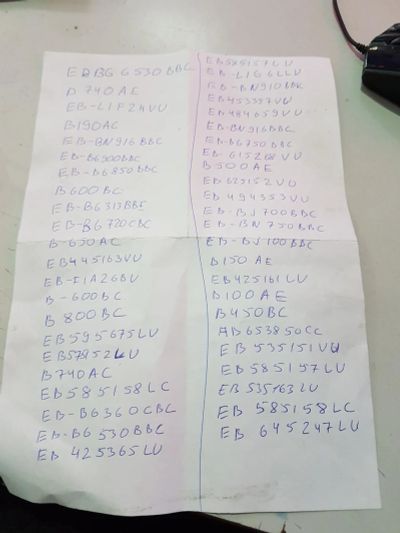 EBBG6530BBC
B740AE
EB-L1F2HVU
B190AC
EB-BN916BBC
EB-BG900BBC
EB-BG850BBC
B600BC
EB-BG313BBE
EB-BG720CBC
B-650AC
EB445163VU
EB-F1A2GBU
B-600BC
B800BC
EB595675LU
EB575152LU
B740AC
EB585158LC
EB-BG360CBC
EB-BG530BBC
EB425365LU
EB585157LU
EB-L1G6LLU
EB-BN910BBC
EB453357VU
EB484659VU
EB-BN916BBC
EB-BG750BBC
EB615268VU
B500AE
EB625152VU
EB494353VU
EB-BJ700BBC
EB-BN750BBC
EB-BJ100BBC
B150AE
EB425161LU
B100AE
B450BC
AB653850CC
EB535151VU
EB585157LU
EB535163LU
EB585158LC
EB645247LU